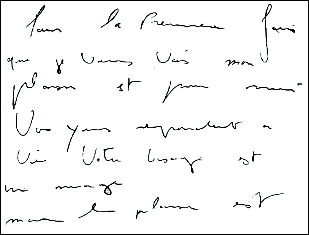 Pour la Premiere fois
que je vous vois mon
plaisir est pour moi
Vos yeux respondent a
Votre visage est
un
le plaisir est